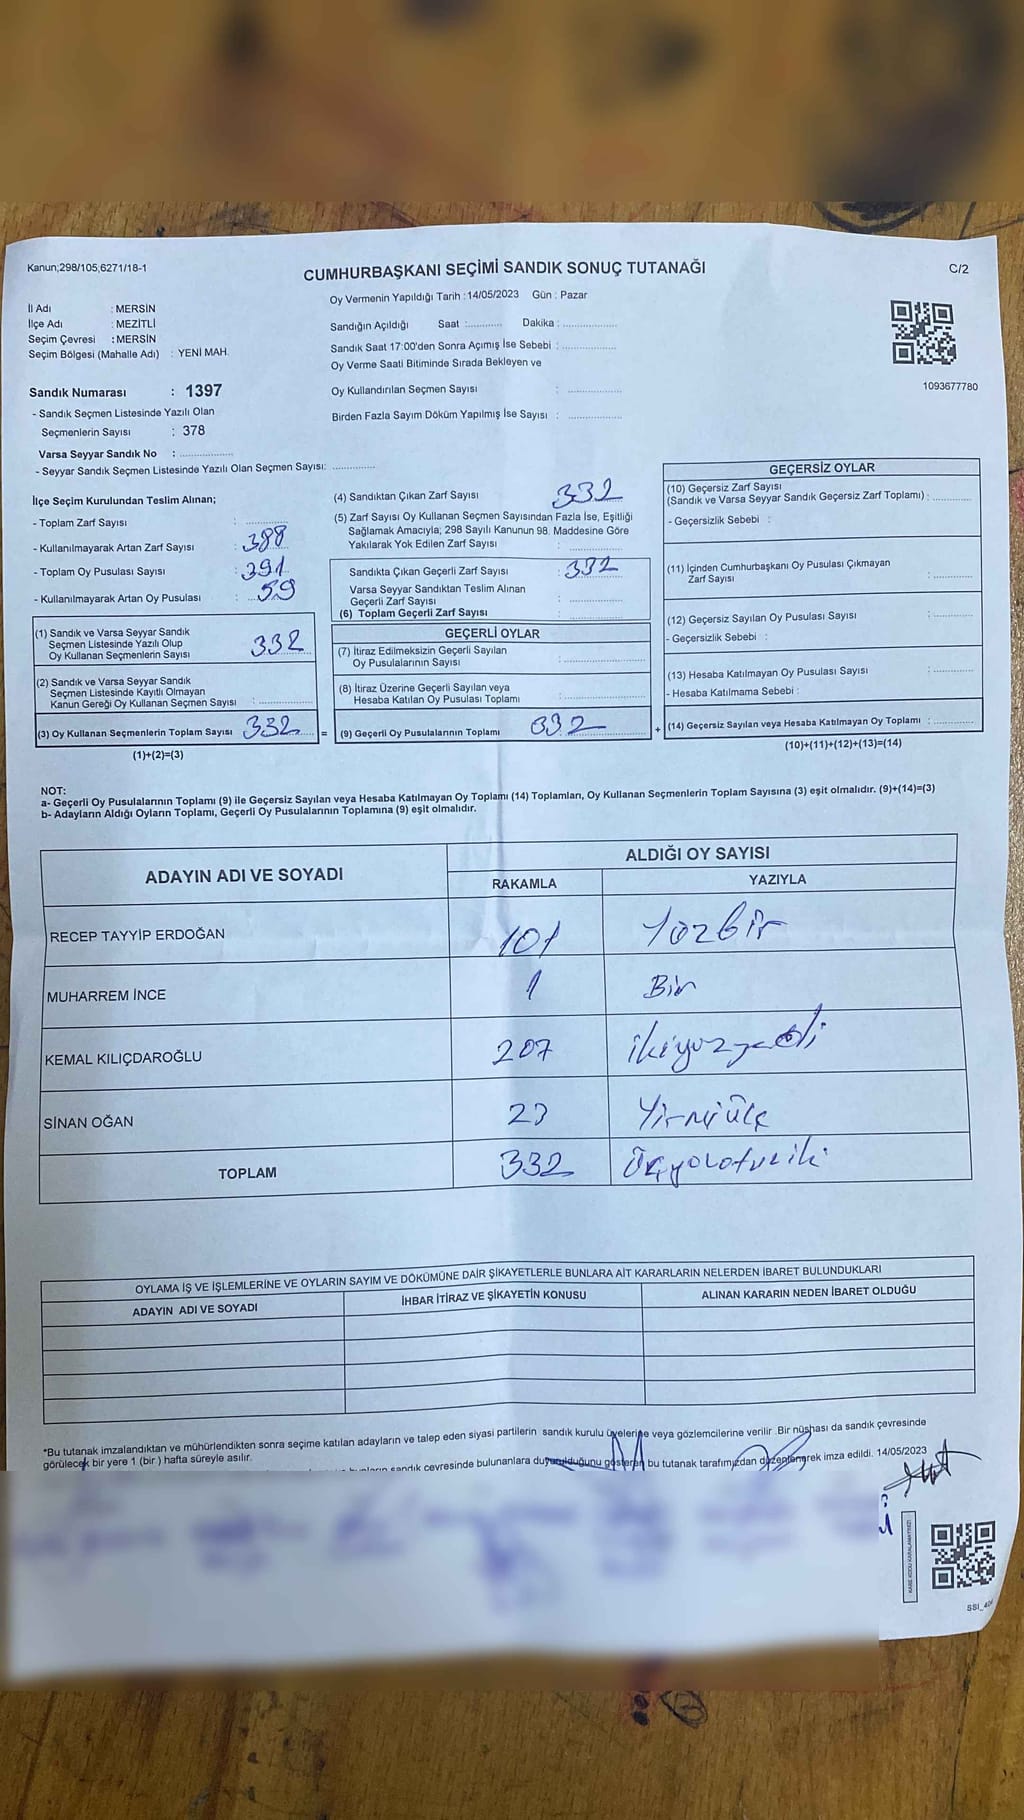 Kanun;298/105;6271/18-1
CUMHURBAŞKANI SEÇİMİ SANDIK SONUÇ TUTANAĞI
C/2
İl Adı : MERSİN
İlçe Adı : MEZİTLİ
Seçim Çevresi : MERSİN
Seçim Bölgesi (Mahalle Adı) : YENİ MAH.
Oy Vermenin Yapıldığı Tarih :14/05/2023 Gün : Pazar
Sandığın Açıldığı Saat :............ Dakika : ..................
Sandık Saat 17:00'den Sonra Açımış İse Sebebi : ..................
Oy Verme Saati Bitiminde Sırada Bekleyen ve
Oy Kullandırılan Seçmen Sayısı : ..................
Birden Fazla Sayım Döküm Yapılmış İse Sayısı : ..................
1093677780
Sandık Numarası : 1397
- Sandık Seçmen Listesinde Yazılı Olan
Seçmenlerin Sayısı : 378
Varsa Seyyar Sandık No : ..................
- Seyyar Sandık Seçmen Listesinde Yazılı Olan Seçmen Sayısı: ..............
İlçe Seçim Kurulundan Teslim Alınan;
- Toplam Zarf Sayısı : ..............
- Kullanılmayarak Artan Zarf Sayısı : 388
- Toplam Oy Pusulası Sayısı : 391
- Kullanılmayarak Artan Oy Pusulası : 59
(1) Sandık ve Varsa Seyyar Sandık
Seçmen Listesinde Yazılı Olup
Oy Kullanan Seçmenlerin Sayısı 332
(2) Sandık ve Varsa Seyyar Sandık
Seçmen Listesinde Kayıtlı Olmayan
Kanun Gereği Oy Kullanan Seçmen Sayısı : ..................
(3) Oy Kullanan Seçmenlerin Toplam Sayısı 332 =
(1)+(2)=(3)
(4) Sandıktan Çıkan Zarf Sayısı 332
(5) Zarf Sayısı Oy Kullanan Seçmen Sayısından Fazla İse, Eşitliği
Sağlamak Amacıyla; 298 Sayılı Kanunun 98. Maddesine Göre
Yakılarak Yok Edilen Zarf Sayısı : ..................
Sandıkta Çıkan Geçerli Zarf Sayısı : 332
Varsa Seyyar Sandıktan Teslim Alınan
Geçerli Zarf Sayısı : ..................
(6) Toplam Geçerli Zarf Sayısı : ..................
GEÇERLİ OYLAR
(7) İtiraz Edilmeksizin Geçerli Sayılan
Oy Pusulalarının Sayısı : ..................
(8) İtiraz Üzerine Geçerli Sayılan veya
Hesaba Katılan Oy Pusulası Toplamı : ..................
(9) Geçerli Oy Pusulalarının Toplamı 332 +
GEÇERSİZ OYLAR
(10) Geçersiz Zarf Sayısı
(Sandık ve Varsa Seyyar Sandık Geçersiz Zarf Toplamı) : ............
- Geçersizlik Sebebi :
(11) İçinden Cumhurbaşkanı Oy Pusulası Çıkmayan
Zarf Sayısı : ............
(12) Geçersiz Sayılan Oy Pusulası Sayısı : ............
- Geçersizlik Sebebi :
(13) Hesaba Katılmayan Oy Pusulası Sayısı : ............
- Hesaba Katılmama Sebebi :
(14) Geçersiz Sayılan veya Hesaba Katılmayan Oy Toplamı : ............
(10)+(11)+(12)+(13)=(14)
NOT:
a- Geçerli Oy Pusulalarının Toplamı (9) ile Geçersiz Sayılan veya Hesaba Katılmayan Oy Toplamı (14) Toplamları, Oy Kullanan Seçmenlerin Toplam Sayısına (3) eşit olmalıdır. (9)+(14)=(3)
b- Adayların Aldığı Oyların Toplamı, Geçerli Oy Pusulalarının Toplamına (9) eşit olmalıdır.
ADAYIN ADI VE SOYADI ALDIĞI OY SAYISI
RAKAMLA YAZIYLA
RECEP TAYYİP ERDOĞAN 101 Yüzbir
MUHARREM İNCE 1 Bir
KEMAL KILIÇDAROĞLU 207 ikiyüzyedi
SİNAN OĞAN 23 Yirmiüç
TOPLAM 332 Üçyüzotuziki
OYLAMA İŞ VE İŞLEMLERİNE VE OYLARIN SAYIM VE DÖKÜMÜNE DAİR ŞİKAYETLERLE BUNLARA AİT KARARLARIN NELERDEN İBARET BULUNDUKLARI
ADAYIN ADI VE SOYADI İHBAR İTİRAZ VE ŞİKAYETİN KONUSU ALINAN KARARIN NEDEN İBARET OLDUĞU
*Bu tutanak imzalandıktan ve mühürlendikten sonra seçime katılan adayların ve talep eden siyasi partilerin sandık kurulu üyelerine veya gözlemcilerine verilir .Bir nüshası da sandık çevresinde
görülecek bir yere 1 (bir ) hafta süreyle asılır.
sandık çevresinde bulunanlara duyurulduğunu gösteren bu tutanak tarafımızdan düzenlenerek imza edildi. 14/05/2023
KARE KODU KARALAMAYINIZ!